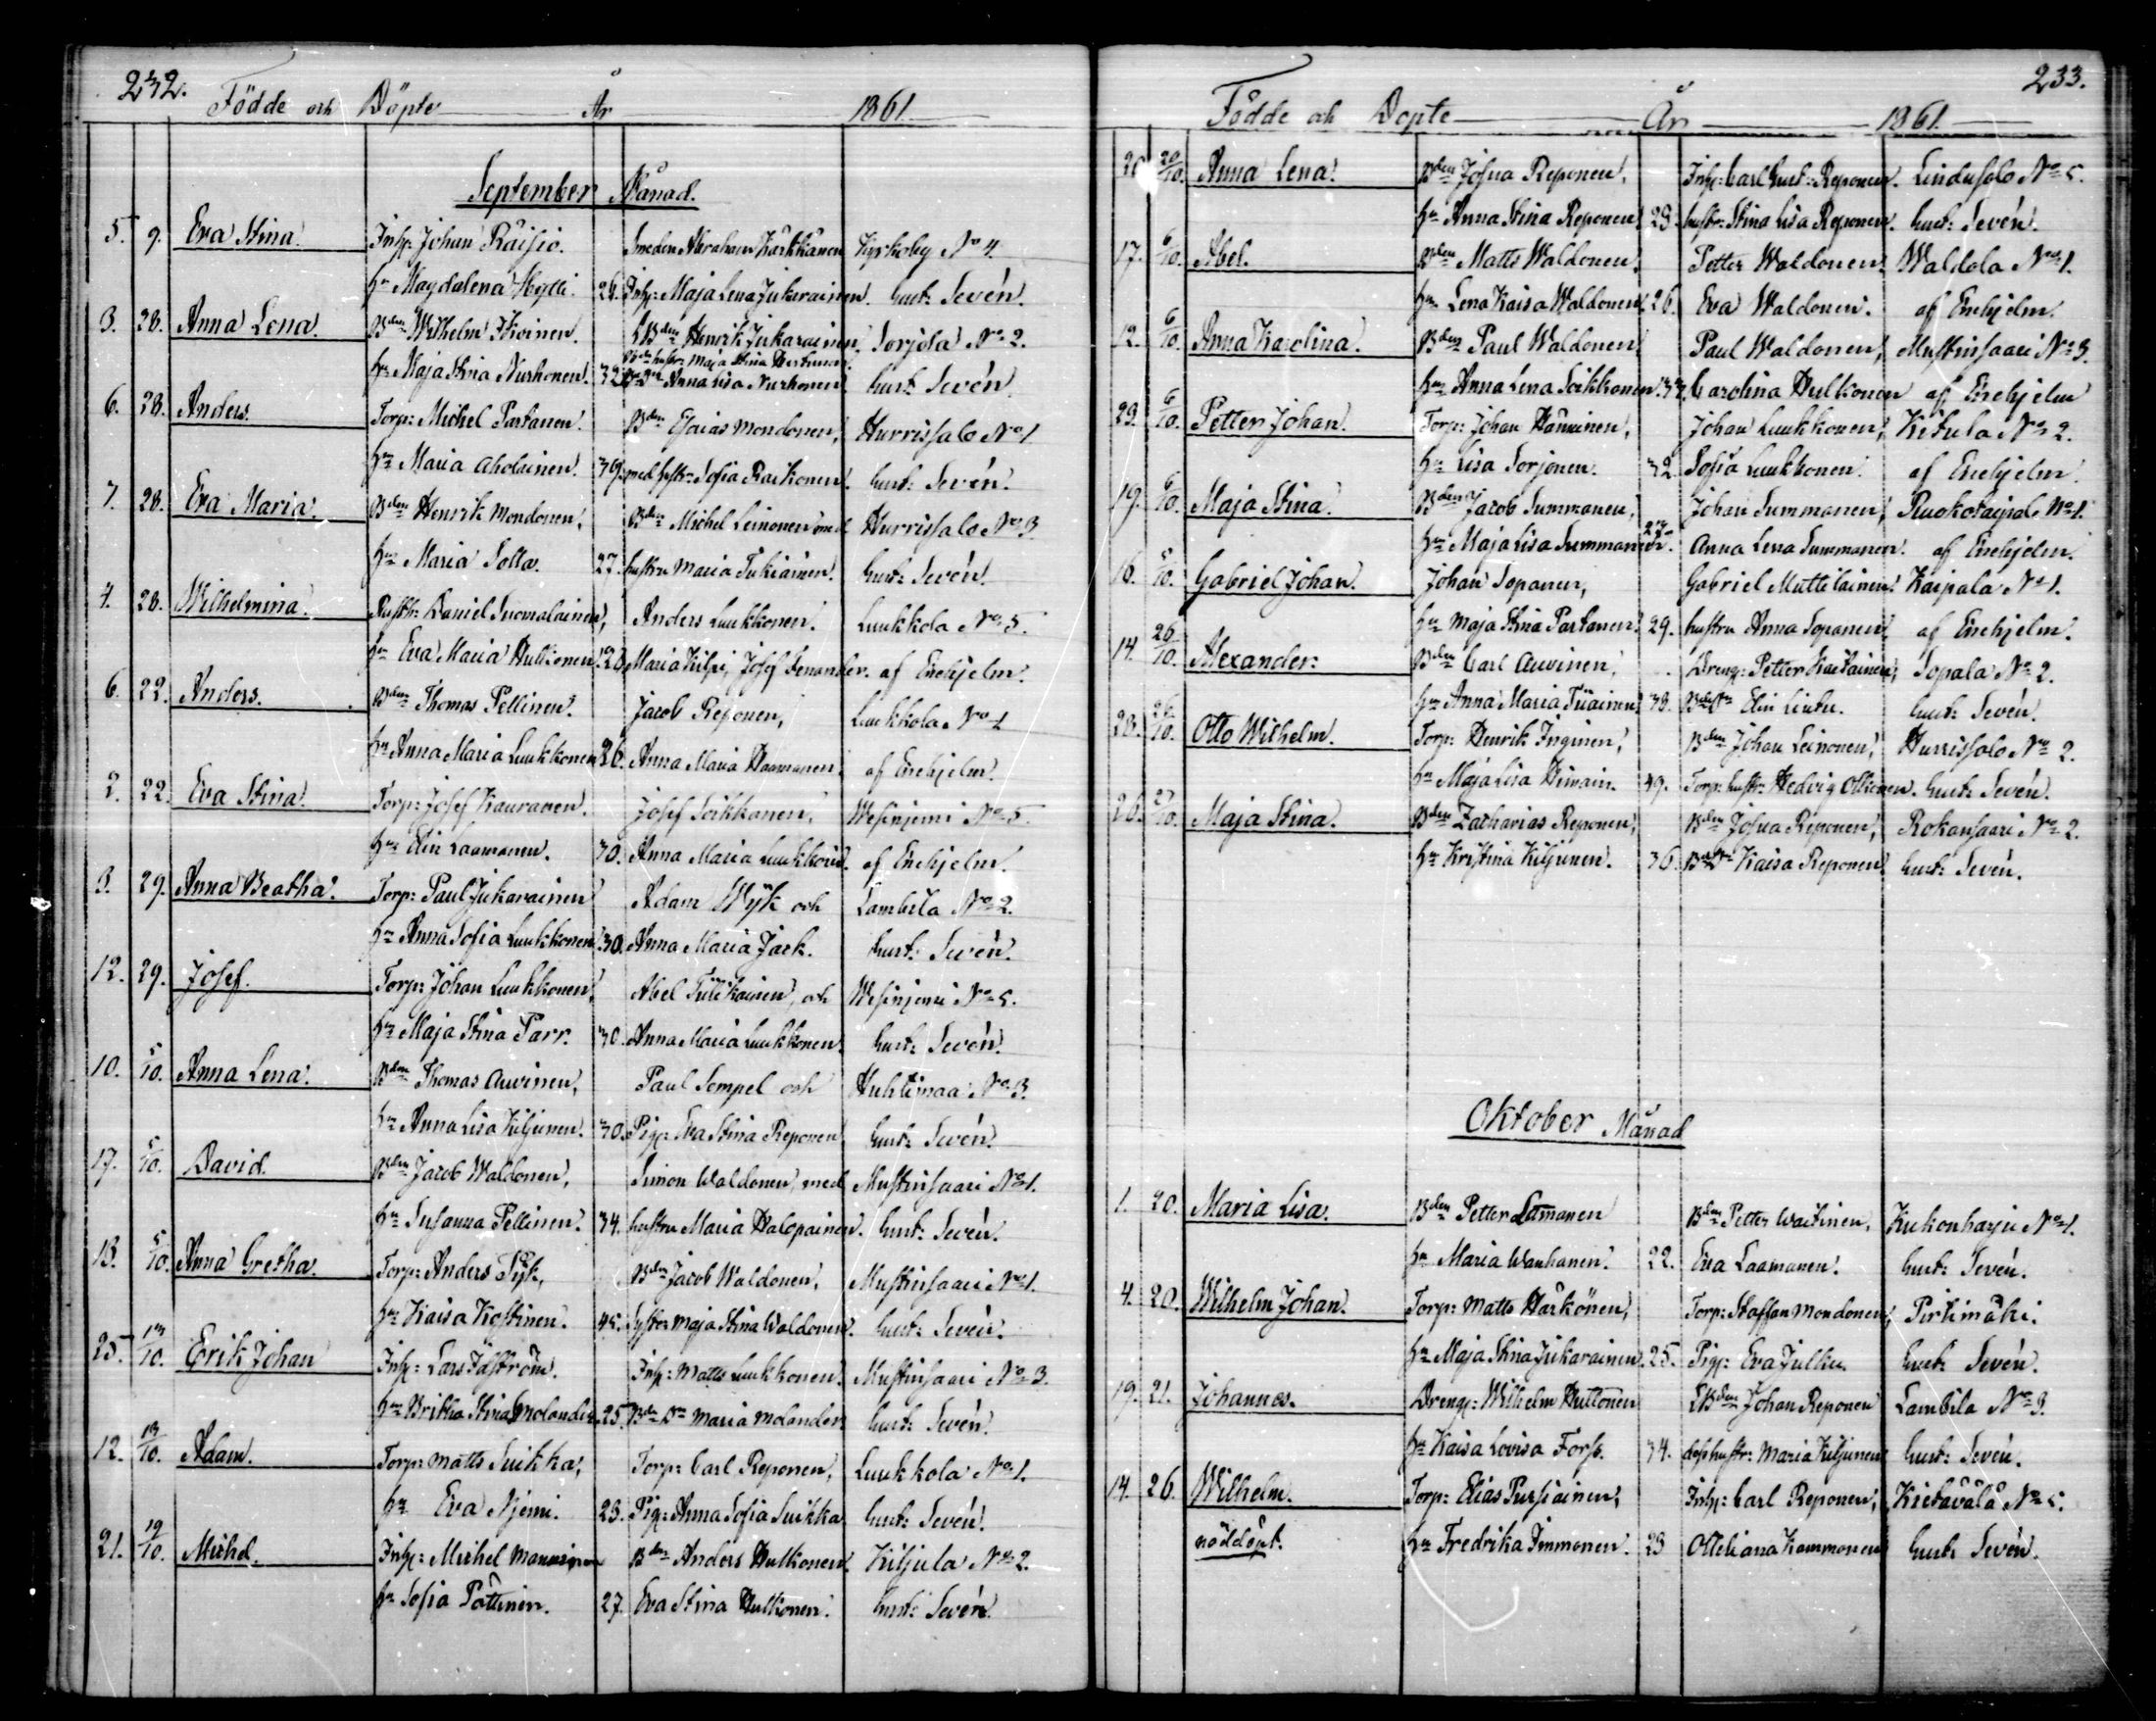 232.
Födde och Döpte År 1861
September Månad.
5. 9. Eva Stina. Inh: Johan Räisiö. Smeden Abraham Kärkkänen Kyrkoby No 4.
hu Magdalena Hytti. 24. Inh: Maja Lena Jukarainen. Gust: Sevén.
3. 28. Anna Lena. Bden Wilhelm Ikoinen. LBden Henrik Jukarainen, Sorjola No 2.
Bden hustru Maja Stina
hu Maja Stina Nurhonen. 32 Anna Lisa Nurhonen. Gust: Sevén
6. 28. Anders. Torp: Michel Partanen. Bden Esaias Mondonen, Hurrissalo No 1
hu Maria Aholainen. 39. med hustr: Sofia Raikonen. Gust: Sevén.
7. 28. Eva Maria. Bden Henrik Mondonen, Bden Michel Leinonen med Hurrissalo No 3.
hu Maria Sotta. 27. hustru Maria Tukiainen. Gust: Sevén.
4. 28. Wilhelmina. Daniel Suomalainen, Anders Luukkonen. Luukkola No 5.
hu Eva Maria Hulkonen. 26. Maria Kilpi, Josef Senander. af Enehjelm.
6. 22. Anders. Bden Thomas Pellinen. Jacob Reponen, Luukkola No 1
hu Anna Maria Luukkonen 26. Anna Maria Haamanen. af Enehjelm.
2. 22. Eva Stina. Torp: Josef Kauranen. Josef Soikkanen, Wesinjemi No 5
hu Elin Laamanen. 30. Anna Maria Luukkoin. af Enehjelm.
3. 29. Anna Beatha. Torp: Paul Jukarainen Adam Wyk och Lambila No 2.
hu Anna Sofia Luukkonen. 30. Anna Maria Jack. Gust: Sevén.
12. 29. Josef. Torp: Johan Luukkonen, Abel Tulikainen, och Wesinjemi No 5.
hu Maja Stina Parr. 30. Anna Maria Luukkonen. Gust: Sevén.
10. 5/10. Anna Lena. Bden Thomas Auvinen, Paul Sempel och Huhtimaa No 3.
hu Anna Lisa Kiljunen. 30. Pig: Eva Stina Reponen Gust: Sevén.
17. 5/10. David. Bden Jacob Waldonen, Simon Waldonen, med Mustinsaari No 1.
hu Susanna Pellinen. 34. hustru Maria Halopainen. Gust: Sevén.
13. 5/10. Anna Gretha. Torp: Anders Tyk, Bden Jacob Waldonen, Mustinsaari No 1.
hu Kaisa Kostinen. 45. Syster Maja Stina Waldonen. Gust: Sevén.
25. 13/10. Erik Johan Inh: Lars Tåström. Inh: Matts Luukkonen. Mustinsaari No 3.
hu Britha Stina Molander 25. Maria Molander. Gust: Sevén.
12. 13/10. Adam. Torp: Matts Suikka, Torp: Carl Reponen, Luukkola No 1.
hu Eva Njemi. 23. Pig: Anna Sofia Suikka Gust: Sevén.
21. 19/10. Michel. Inh: Michel Manninen Bden Anders Hulkonen. Kiljula No 2.
hu Sofia Pöllinen. 27. Eva Stina Hulkonen. Gust: Sevén.
233.
Födde och Döpte År 1861.
20/10. Anna Lena. Bden Josua Reponen, Inh: Carl Gust: Reponen. Lindusalo No 5.
hu Anna Stina Reponen 23. hustr: Stina Lisa Reponen. Gust: Sevén.
17. 6/10. Abel. Bden Matts Waldonen, Petter Waldonen. Waldola No 1.
hu Lena Kaisa Waldonen. 26. Eva Waldonen. af Enehjelm.
12. 6/10. Anna Karolina. Bden Paul Waldonen, Paul Waldonen, Mustinsaari No 3.
hu Anna Lena Soikkonen 33. Carolina Hulkonen af Enehjelm
29. 6/10. Petter Johan. Torp: Johan Hänninen, Johan Luukkonen, Kitula No 2.
hu Lisa Sorjonen. 32. Sofia Luukkonen. af Enehjelm.
19. 6/10. Maja Stina. Bden Jacob Summanen, Johan Summanen, Ruokotaipal No 1.
hu Maja Lisa Summanen. 27. Anna Lena Summanen. af Enehjelm.
16. 5/10. Gabriel Johan. Johan Sopanen, Gabriel Muttilainen. Kaipala No 1.
hu Maja Stina Partanen. 29. hustru Anna Sopanen. af Enehjelm.
14. 26/10. Alexander. Bden Carl Auvinen, Dreng: Petter Kaikainen, Sopala No 2.
hu Anna Maria Tiiainen. 38. Elin Lintu. Gust: Sevén.
28. 26/10. Otto Wilhelm. Torp: Henrik Inginen, Bden Johan Leinonen, Hurrissalo No 2.
hu Maja Lisa Himain. 49. Torp: hustr: Hedvig Ollikanen. Gust: Sevén.
26. 27/10. Maja Stina. Bden Zacharias Reponen, Bden Josua Reponen, Rokansaari No 2.
hu Kristina Kiljunen. 36. Kaisa Reponen Gust: Sevén.
Oktober Månad
1. 20. Maria Lisa. Bden Petter Laamanen Bden Petter Waitinen, Kukonharju No 1.
hu Maria Wanhanen. 22. Eva Laamanen. Gust: Sevén.
4. 20. Wilhelm Johan. Torp: Matts Härkönen, Torp: Staffan Mondonen, Pirtimäki.
hu Maja Stina Jukarainen. 25. Pig: Eva Julku. Gust: Sevén.
19. 21. Johannes. Dreng: Wilhelm Huttonen LBden Johan Reponen Lambila No 3.
hu Kaisa Lovisa Forss. 34. dess hustr: Maria Kiljunen Gust: Sevén.
14. 26. Wilhelm. Torp: Elias Pursiainen, Inh: Carl Reponen, Kietävälä No 5.
nöddöpt. hu Fredrika Immonen. 23 Ottiliana Kammonen Gust: Sevén.